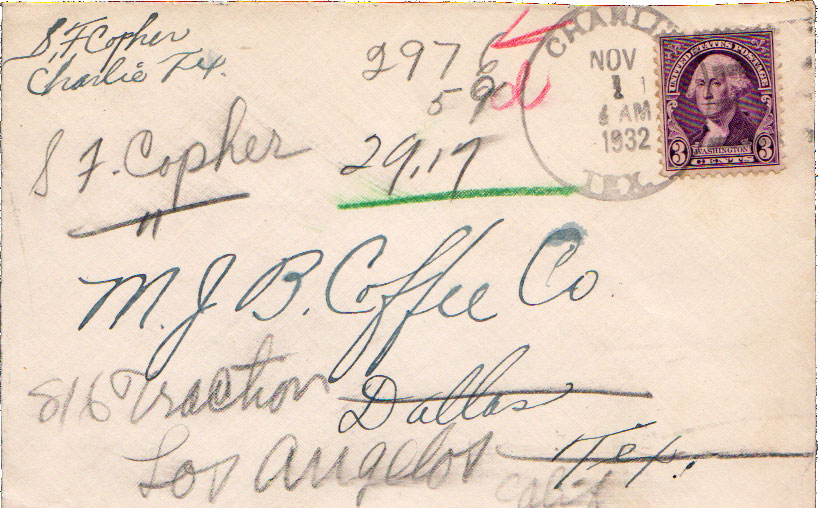 S, F Copher
Charlie Tex.
2976
59d
29.17
S F. Copher
"
CHARLIE
NOV
1
AM
1932
TEX.
UNITED STATES POSTAGE
WASHINGTON
3 CENTS 3
M. J B. Coffee Co.
816 Traction
Dallas
Los Angelos
Tex.
Calif